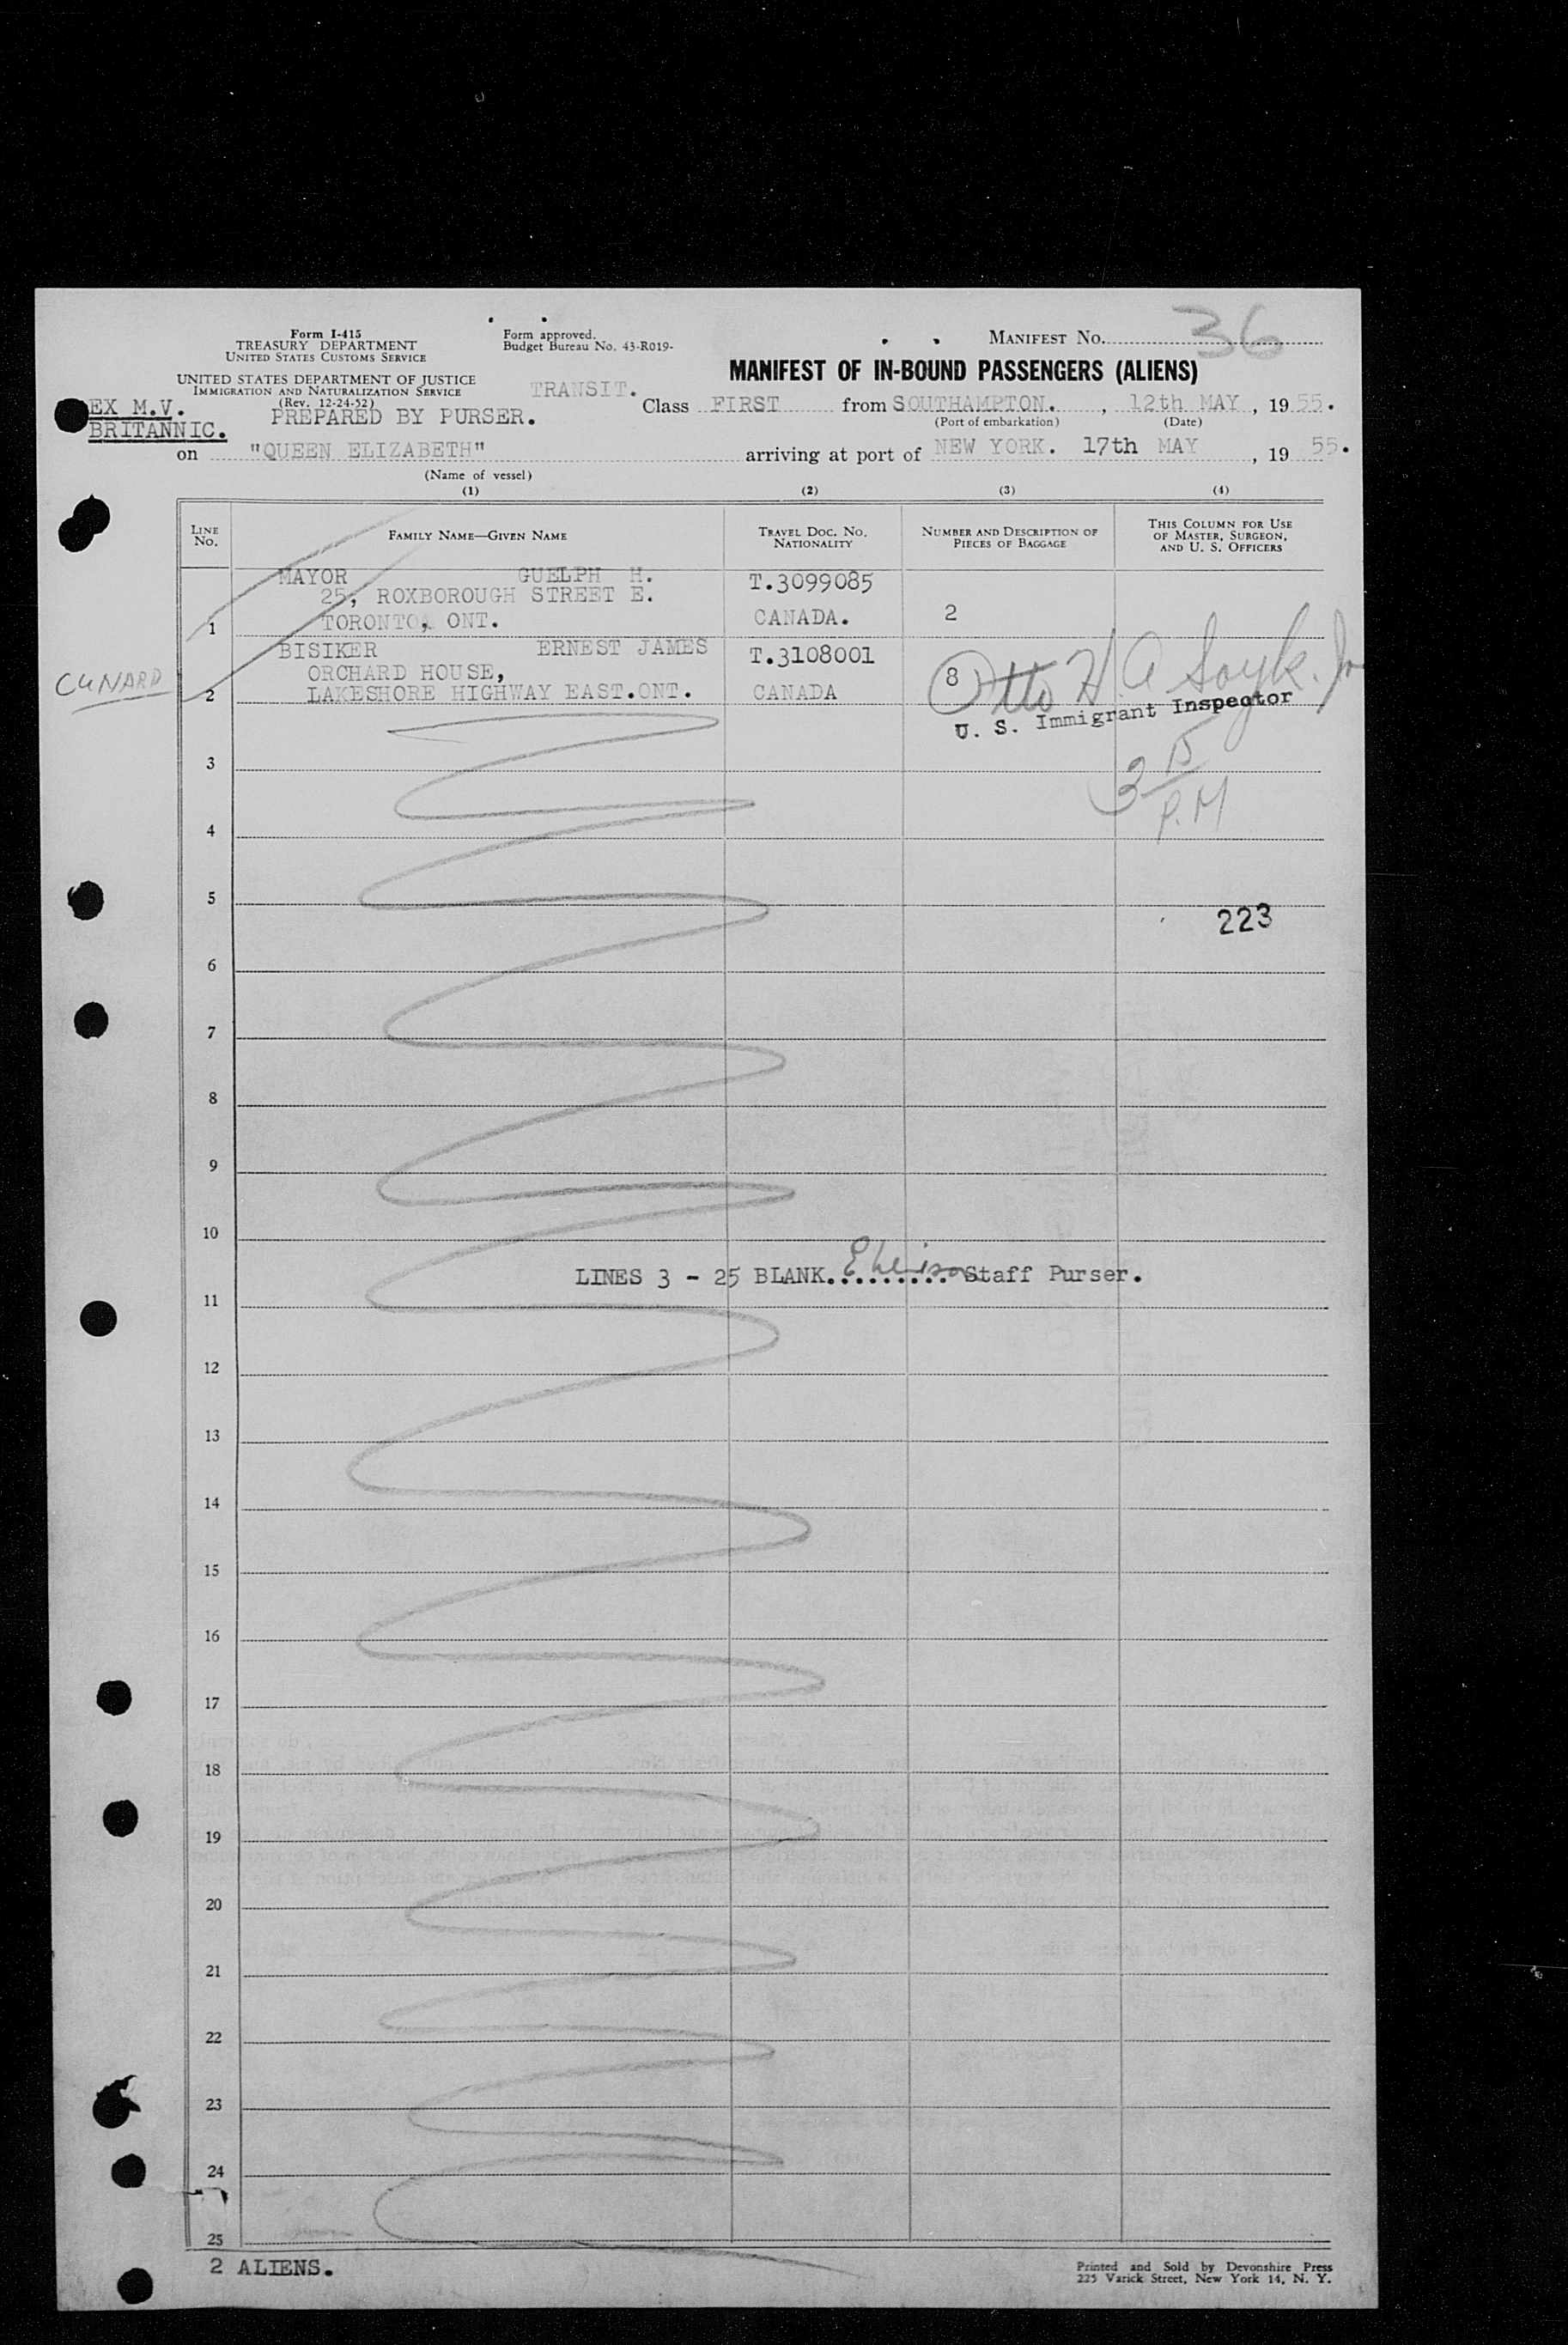 Form I-415
TREASURY DEPARTMENT
UNITED STATES CUSTOMS SERVICE
Form approved.
Budget Bureau No. 43-R019-
MANIFEST No. 36
UNITED STATES DEPARTMENT OF JUSTICE
IMMIGRATION AND NATURALIZATION SERVICE
(Rev. 12-24-52)
TRANSIT.
MANIFEST OF IN-BOUND PASSENGERS (ALIENS)
EX M.V.
BRITANNIC.
PREPARED BY PURSER.
Class FIRST from SOUTHAMPTON. , 12th MAY , 1955.
(Port of embarkation) (Date)
on "QUEEN ELIZABETH" arriving at port of NEW YORK. 17th MAY , 19 55.
(Name of vessel)
(1) (2) (3) (4)
LINE No. FAMILY NAME—GIVEN NAME TRAVEL DOC. NO. NATIONALITY NUMBER AND DESCRIPTION OF PIECES OF BAGGAGE THIS COLUMN FOR USE OF MASTER, SURGEON, AND U. S. OFFICERS
MAYOR GUELPH H. T.3099085
25, ROXBOROUGH STREET E.
1 TORONTO, ONT. CANADA. 2
BISIKER ERNEST JAMES T.3108001
ORCHARD HOUSE,
CUNARD
2 LAKESHORE HIGHWAY EAST.ONT. CANADA 8
Otto H A
U. S. Immigrant Inspector
3
3 15
P.M
4
5
223
6
7
8
9
10
LINES 3 - 25 BLANK.......... Staff Purser.
11
12
13
14
15
16
17
18
19
20
21
22
23
24
25
2 ALIENS.
Printed and Sold by Devonshire Press
225 Varick Street, New York 14, N. Y.